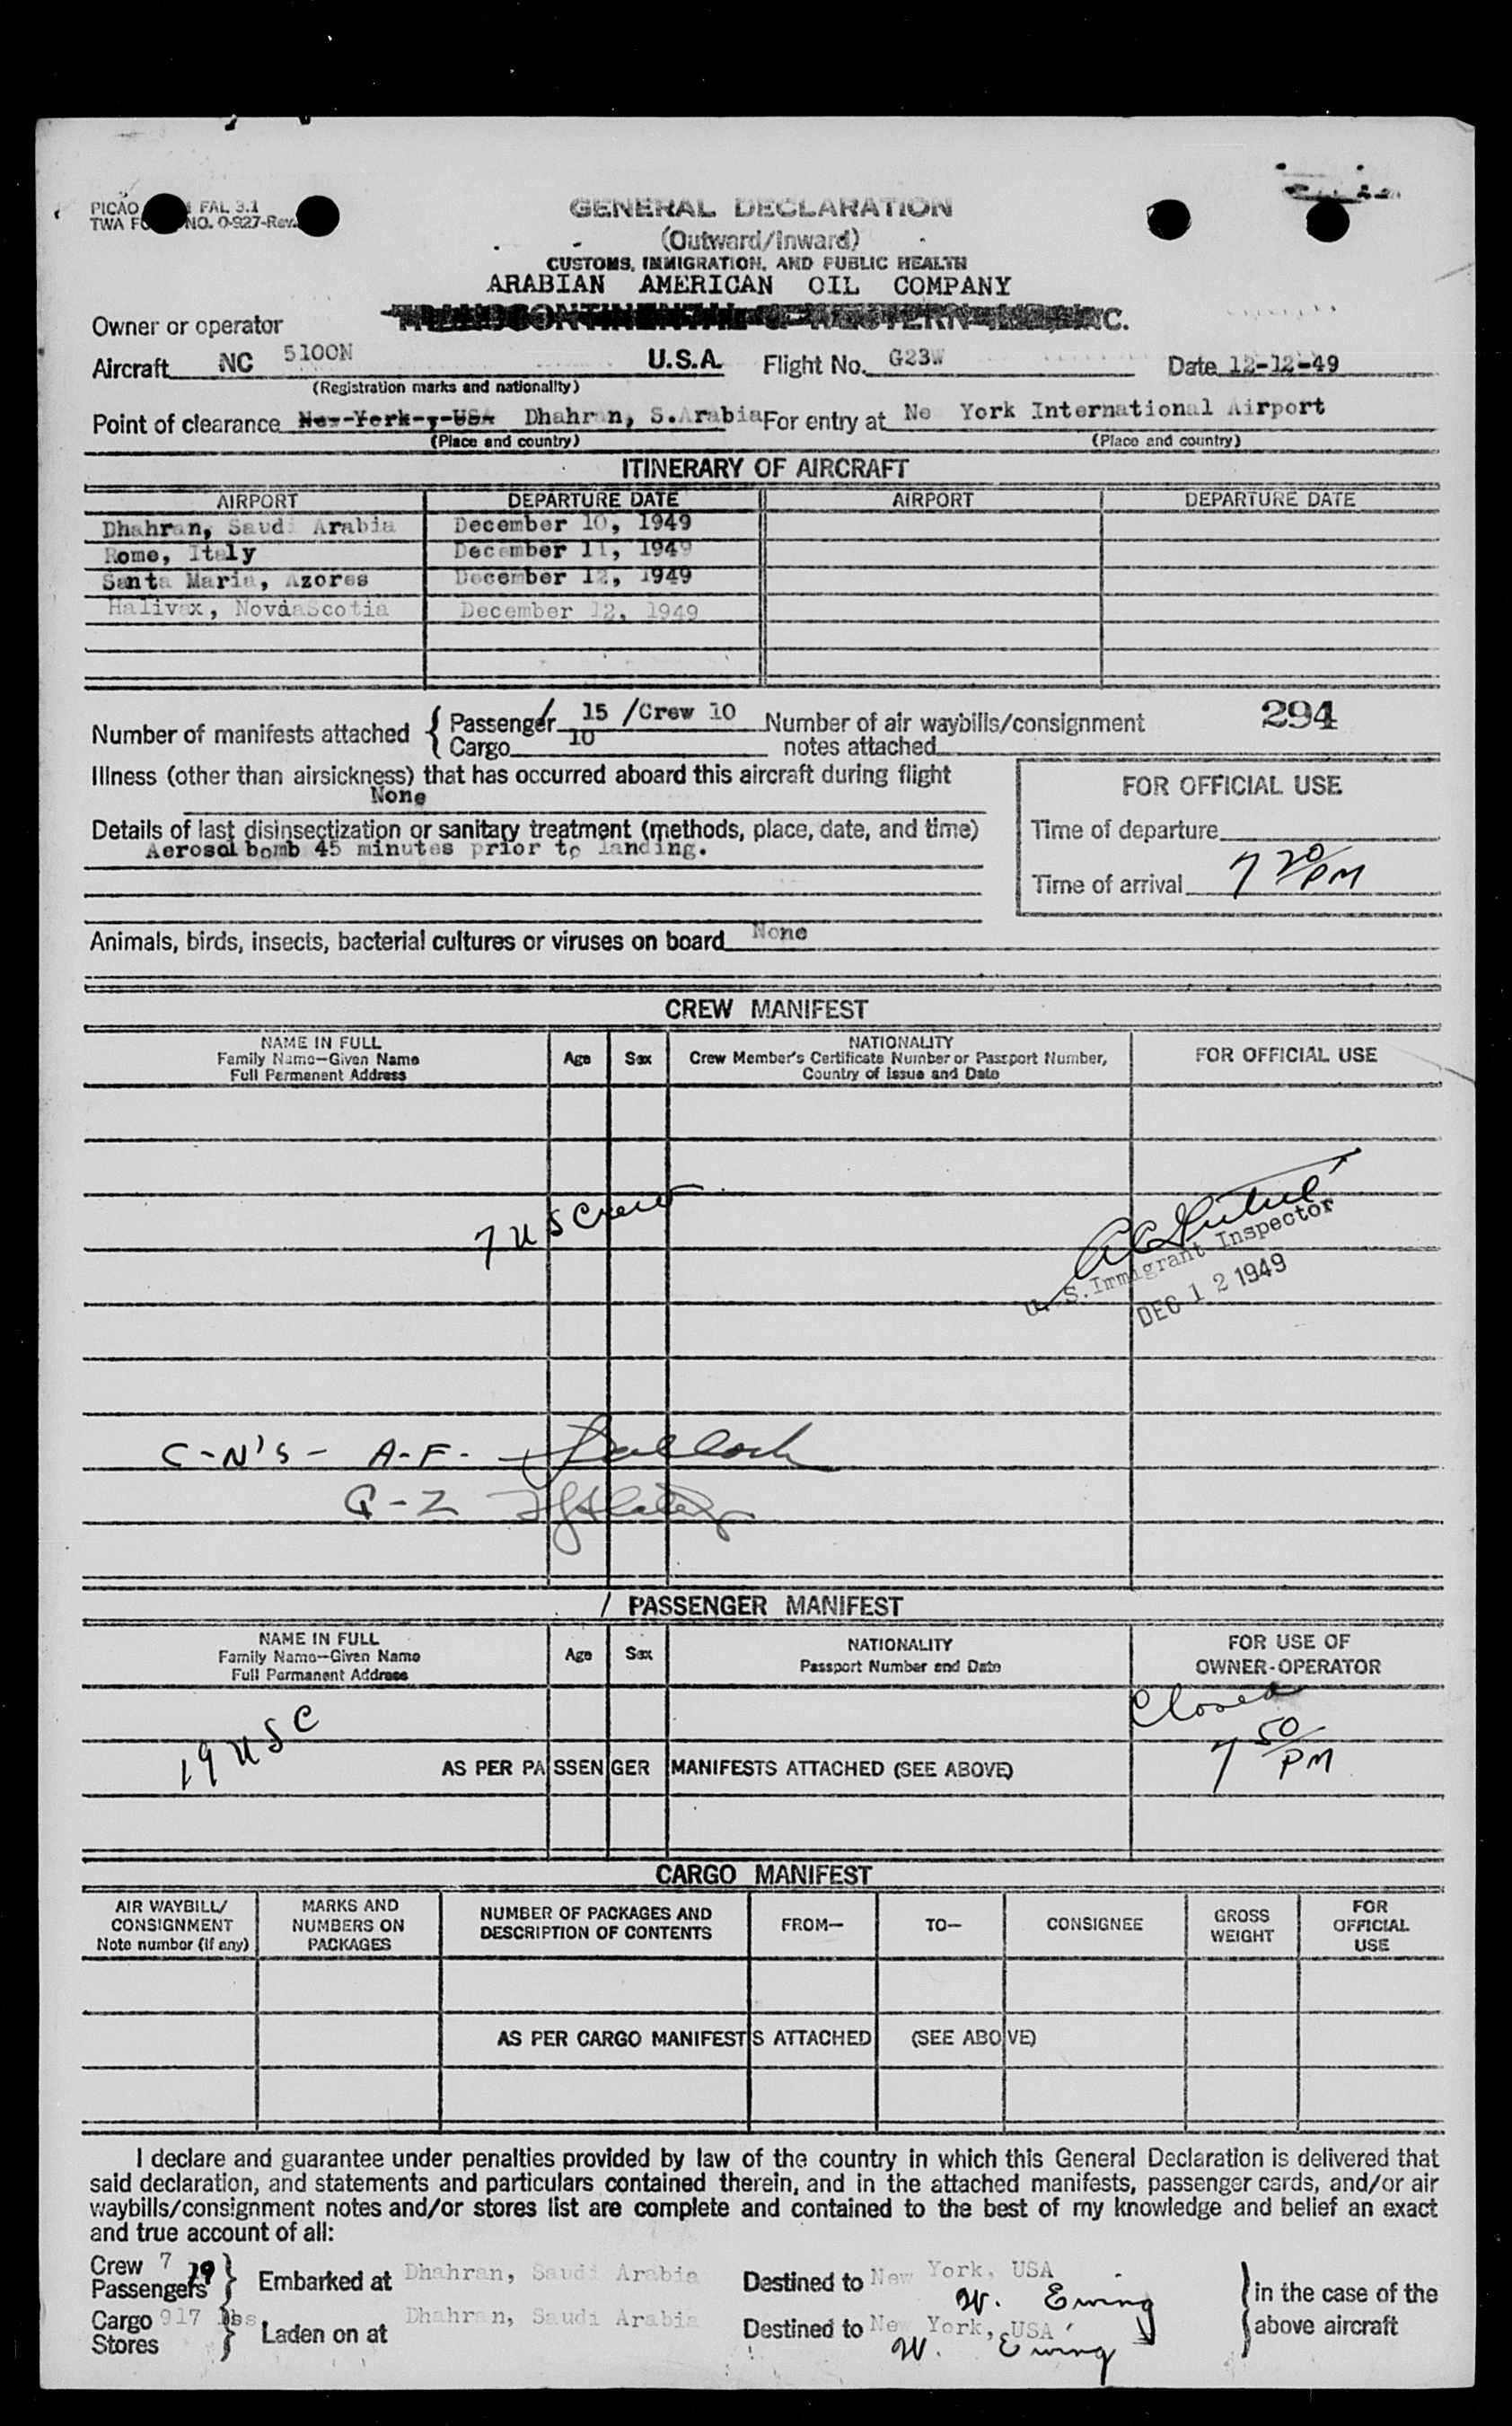 PICAO FAL 3.1
TWA NO. 0-927-Rev.
GENERAL DECLARATION
(Outward/Inward)
CUSTOMS, IMMIGRATION, AND PUBLIC HEALTH
ARABIAN AMERICAN OIL COMPANY
Owner or operator
Aircraft NC 5100N U.S.A. Flight No. G23W Date 12-12-49
(Registration marks and nationality)
Point of clearance New York, USA Dhahran, S.Arabia For entry at Ne York International Airport
(Place and country) (Place and country)
ITINERARY OF AIRCRAFT
AIRPORT DEPARTURE DATE AIRPORT DEPARTURE DATE
Dhahran, Saudi Arabia December 10, 1949
Rome, Italy December 11, 1949
Santa Maria, Azores December 12, 1949
Halivax, Nova Scotia December 12, 1949
Number of manifests attached { Passenger / 15 / Crew 10 Number of air waybills/consignment 294
Cargo 10 notes attached
Illness (other than airsickness) that has occurred aboard this aircraft during flight
None
FOR OFFICIAL USE
Details of last disinsectization or sanitary treatment (methods, place, date, and time)
Aerosol bomb 45 minutes prior to landing.
Time of departure
Time of arrival 7 20 PM
Animals, birds, insects, bacterial cultures or viruses on board None
CREW MANIFEST
NAME IN FULL
Family Name—Given Name
Full Permanent Address
Age Sex
NATIONALITY
Crew Member's Certificate Number or Passport Number,
Country of Issue and Date
FOR OFFICIAL USE
7 US Crew
U.S. Immigrant Inspector
DEC 12 1949
C-N's - A-F-
G-Z
/ PASSENGER MANIFEST
NAME IN FULL
Family Name—Given Name
Full Permanent Address
Age Sex
NATIONALITY
Passport Number and Date
FOR USE OF
OWNER-OPERATOR
Closed
7 50 PM
19 USC
AS PER PASSENGER MANIFESTS ATTACHED (SEE ABOVE)
CARGO MANIFEST
AIR WAYBILL/
CONSIGNMENT
Note number (if any)
MARKS AND
NUMBERS ON
PACKAGES
NUMBER OF PACKAGES AND
DESCRIPTION OF CONTENTS
FROM—
TO—
CONSIGNEE
GROSS
WEIGHT
FOR
OFFICIAL
USE
AS PER CARGO MANIFESTS ATTACHED (SEE ABOVE)
I declare and guarantee under penalties provided by law of the country in which this General Declaration is delivered that
said declaration, and statements and particulars contained therein, and in the attached manifests, passenger cards, and/or air
waybills/consignment notes and/or stores list are complete and contained to the best of my knowledge and belief an exact
and true account of all:
Crew 7
Passengers 19 } Embarked at Dhahran, Saudi Arabia Destined to New York, USA
W. Ewing
} in the case of the
above aircraft
Cargo 917 lbs.
Stores } Laden on at Dhahran, Saudi Arabia Destined to Ne York, USA
W. Ewing